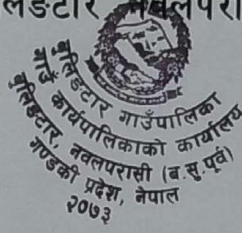 बुलिङटार गाउँपालिका
गाउँ कार्यपालिकाको कार्यालय
बुलिङटार, नवलपरासी (ब.सु.पूर्व)
गण्डकी प्रदेश, नेपाल
२०७३